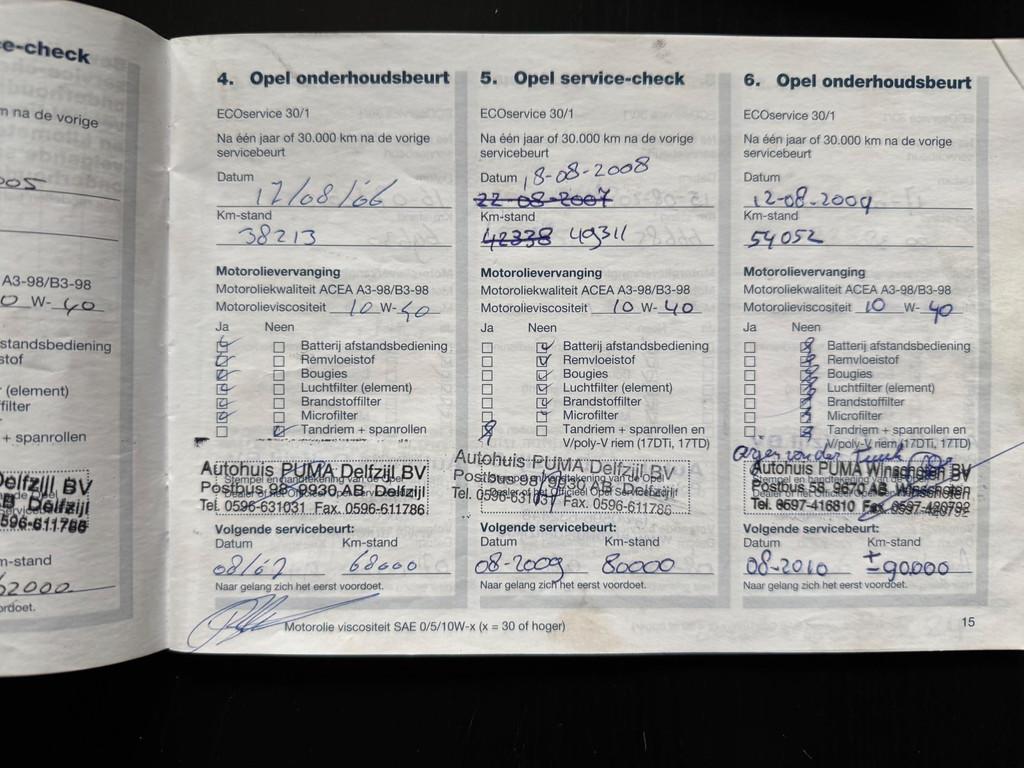 e-check
m na de vorige
005
A3-98/B3-98
0 W- 40
standsbediening
stof
r (element)
filter
+ spanrollen
Delfzijl BV
AB Delfzijl
0596-611786
m-stand
62000
ordoet.
4. Opel onderhoudsbeurt
ECOservice 30/1
Na één jaar of 30.000 km na de vorige
servicebeurt
Datum
17/08/06
Km-stand
38213
Motorolievervanging
Motoroliekwaliteit ACEA A3-98/B3-98
Motorolieviscositeit 10 W- 40
Ja Neen
Batterij afstandsbediening
Remvloeistof
Bougies
Luchtfilter (element)
Brandstoffilter
Microfilter
Tandriem + spanrollen
Autohuis PUMA Delfzijl BV
Stempel en handtekening van de Opel
Postbus 98 9930 AB Delfzijl
Tel. 0596-631031 Fax. 0596-611786
Volgende servicebeurt:
Datum Km-stand
08/07 68000
Naar gelang zich het eerst voordoet.
5. Opel service-check
ECOservice 30/1
Na één jaar of 30.000 km na de vorige
servicebeurt
Datum 18-08-2008
22-08-2007
Km-stand
42338 49311
Motorolievervanging
Motoroliekwaliteit ACEA A3-98/B3-98
Motorolieviscositeit 10 W- 40
Ja Neen
Batterij afstandsbediening
Remvloeistof
Bougies
Luchtfilter (element)
Brandstoffilter
Microfilter
Tandriem + spanrollen en
V/poly-V riem (17DTi, 17TD)
Autohuis PUMA Delfzijl BV
Postbus 98 9930 AB Delfzijl
Tel. 0596-631031 Fax. 0596-611786
Volgende servicebeurt:
Datum Km-stand
08-2009 80000
Naar gelang zich het eerst voordoet.
6. Opel onderhoudsbeurt
ECOservice 30/1
Na één jaar of 30.000 km na de vorige
servicebeurt
Datum
12-08-2009
Km-stand
54052
Motorolievervanging
Motoroliekwaliteit ACEA A3-98/B3-98
Motorolieviscositeit 10 W- 40
Ja Neen
Batterij afstandsbediening
Remvloeistof
Bougies
Luchtfilter (element)
Brandstoffilter
Microfilter
Tandriem + spanrollen en
V/poly-V riem (17DTi, 17TD)
Autohuis PUMA Winschoten BV
Postbus 58 9670 AB Winschoten
Tel. 0597-416810 Fax. 0597-420792
Volgende servicebeurt:
Datum Km-stand
08-2010 ± 90.000
Naar gelang zich het eerst voordoet.
Motorolie viscositeit SAE 0/5/10W-x (x = 30 of hoger)
15